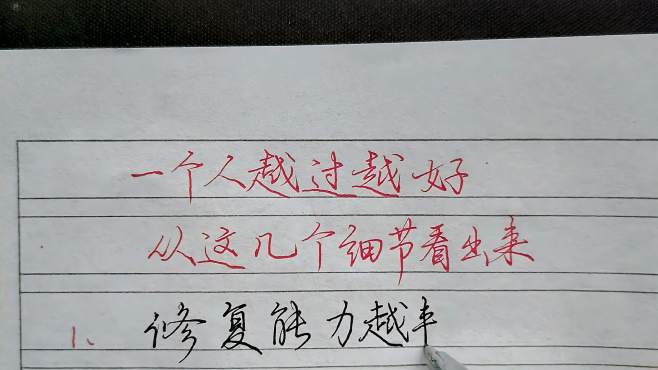 一个人越过越好
从这几个细节看出来
1、修复能力越